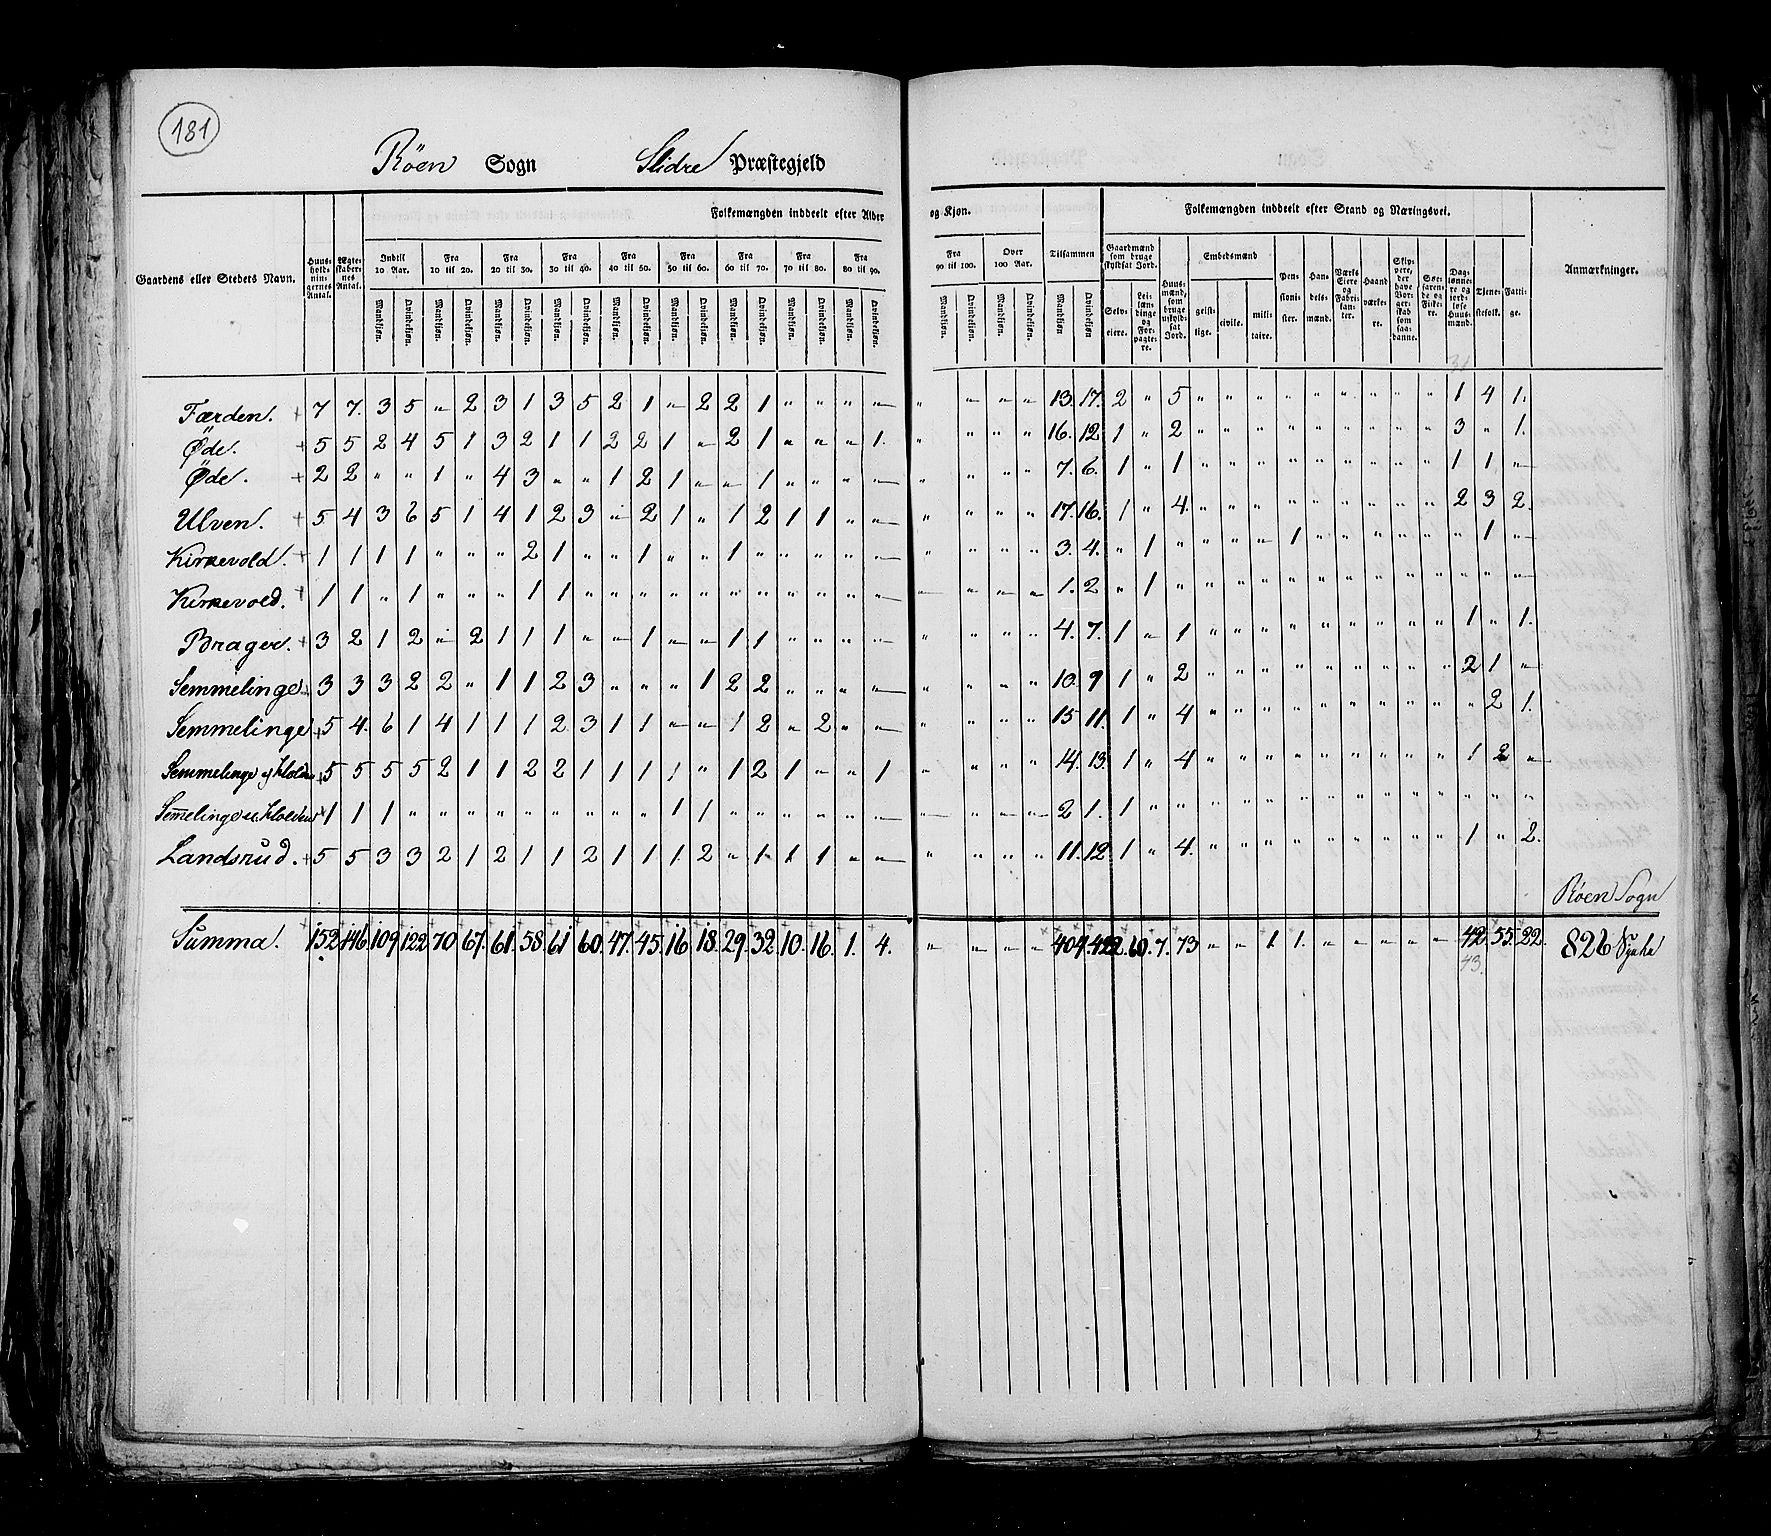 181
Röen Sogn Slidre Præstegjeld
Folkemængden inddeelt efter Alder og Kjøn. Folkemængden inddeelt efter Stand og Næringsvei.
Gaardens eller Stedets Navn. Huusholdningernes Antal. Ægteskabernes Antal. Indtil 10 Aar. Fra 10 til 20. Fra 20 til 30. Fra 30 til 40. Fra 40 til 50. Fra 50 til 60. Fra 60 til 70. Fra 70 til 80. Fra 80 til 90. Fra 90 til 100. Over 100 Aar. Tilsammen Gaardmænd som bruge skyldsat Jord. Huusmænd, som bruge uskyldsat Jord. Embedsmænd Pensionister. Handelsmænd. Værks Eiere og Fabrikanter. Haandværkere. Skippere, der have Borgerskab som saadanne. Søefarende og Fiskere. Daglønnere og jordløse Huusmænd. Tjenestefolk. Fattige. Anmærkninger.
Mandkjøn. Qvindekjøn. Mandkjøn. Qvindekjøn. Mandkjøn. Qvindekjøn. Mandkjøn. Qvindekjøn. Mandkjøn. Qvindekjøn. Mandkjøn. Qvindekjøn. Mandkjøn. Qvindekjøn. Mandkjøn. Qvindekjøn. Mandkjøn. Qvindekjøn. Mandkjøn. Qvindekjøn. Mandkjøn. Qvindekjøn. Mandkjøn Qvindekjøn. Selveiere. Leilændinge og Forpagtere. geistlige. civile. militaire.
Færden. + 7 7. 3 5 " 2 3 1 3 5 2 1 " 2 2 1 " " " " " " " " 13. 17. 2 " 5 " " " " " " " " " 1 4 1.
Øde. + 5 5 2 4 5 1 3 2 1 1 2 2 1 " 2 1 " " " 1. " " " " 16. 12. 1 " 2 " " " " " " " " " 3 " 1.
Øde. + 2 2 " " 1 " 4 3 " " 1 2 1 " " 1 " " " " " " " " 7. 6. 1 " 1 " " " " " " " " " 1 1 "
Ulven. + 5 4 3 6 5 1 4 1 2 3 " 2 1 " 1 2 1 1 " " " " " " 17. 16. 1 " 4. " " " " " " " " " 2 3 2.
Kirkevold. + 1 1 1 1 " " " 2 1 " " 1 " " 1 " " " " " " " " " 3. 4. " 1 " " " " 1 " " " " " " 1 "
Kirkevold. + 1 1 " 1 " " " 1 1 " " " " " " " " " " " " " " " 1. 2 " 1 " " " " " " " " " " " " "
Brager. + 3 2 1 2 " 2 1 1 1 " " 1 " " 1 1 " " " " " " " " 4. 7. 1 " 1 " " " " " " " " " 1 " 1.
Semmelinge + 3 3 3 2 2 " 1 1 2 3 " " " 1 2 2 " " " " " " " " 10. 9 1 " 2 " " " " " " " " " 2 1 "
Semmelinge + 5 4. 6 1 4 1 1 1 2 3 1 1 " " 1 2 " 2 " " " " " " 15 11. 1 " 4 " " " " " " " " " " 2 1.
Semmelinge + 5 5 5 5 2 1 1 2 2 1 1 1 1 " 1 2 1 " " 1 " " " " 14. 13. 1 " 4 " " " " " " " " " 1 2 "
+ 1 1 1 " " " " " " " " " 1 1 " " " " " " " " " " 2 1. 1 " " " " " " " " " " " " " "
Landsrud. + 5 5 3 3 2 1 2 1 1 2 1 1 1 2 " 1 1 1 " " " " " " 11. 12. 1 " 4. " " " " " " " " " 1 " 2.
Röen Sogn
Summa. 152 146. 109. 122 70 67. 61. 58. 61 60. 47. 45. 16. 18. 29. 32. 10. 16. 1. 4. " " " " 404. 7. 73 " " 1. 1. " " " " " 42. 55. 22. 826
43.